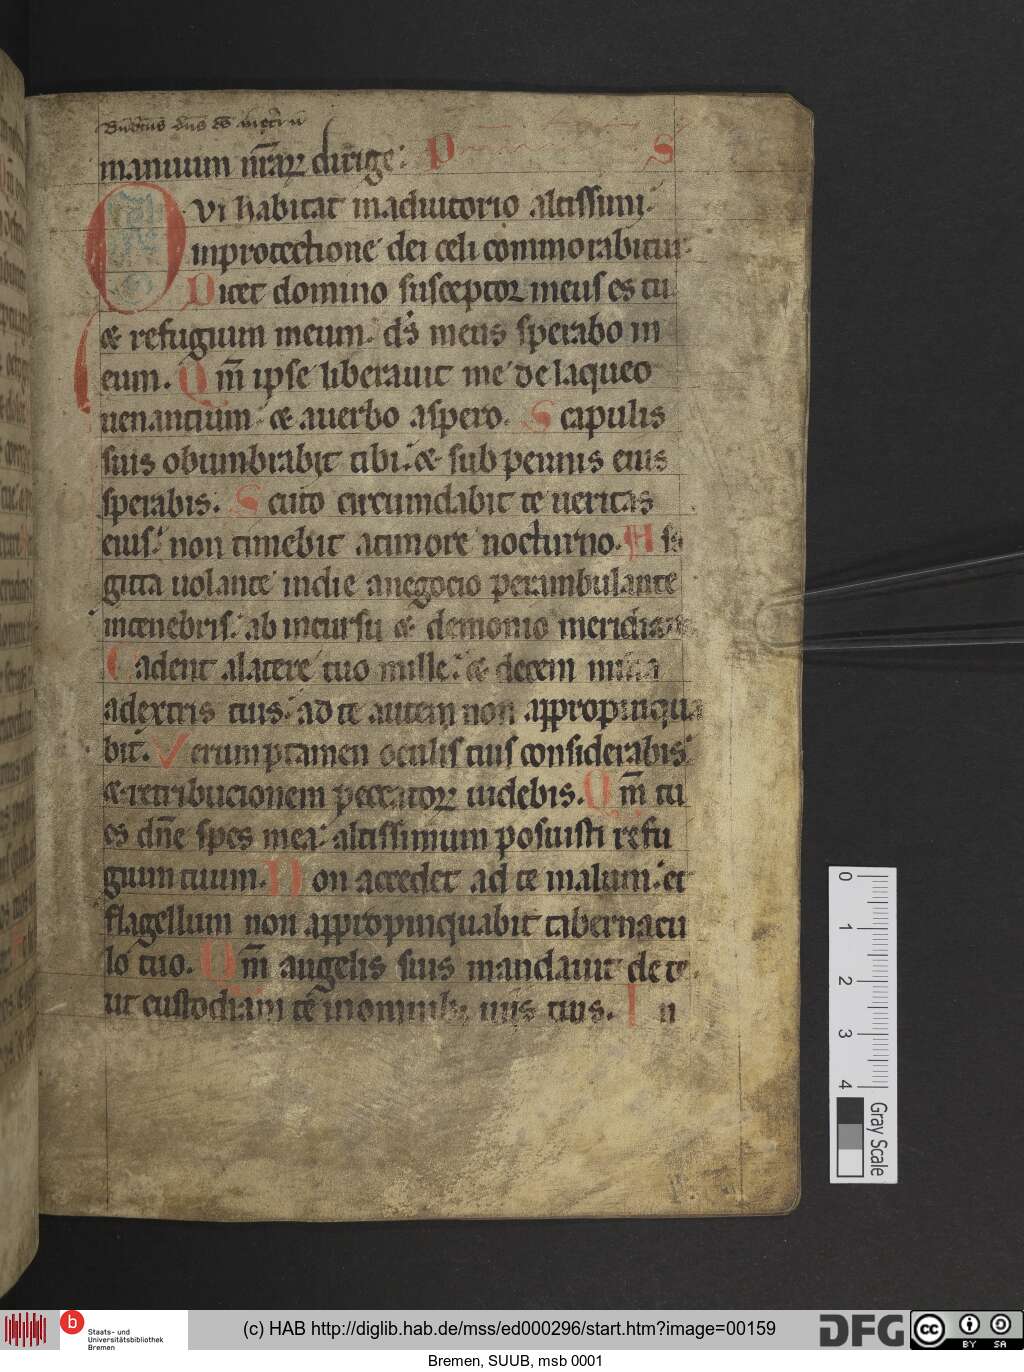 manuum nr̄aꝝ dirige. P S
Qui habitat in adiutorio altissimi.
in protectione dei celi commorabitur.
Dicet domino susceptor meus es tu
& refugium meum. ds̄ meus sperabo in
eum. Qm̄ ipse liberauit me de laqueo
uenantium. & a uerbo aspero. Scapulis
suis obumbrabit tibi. & sub pennis eius
sperabis. Scuto circumdabit te ueritas
eius. non timebit a timore nocturno. A sa
gitta uolante in die a negocio perambulante
in tenebris. ab incursu & demonio meridiano
Cadent a latere tuo mille. & decem milia
a dextris tuis. ad te autem non appropinqua
bit. Verumptamen oculis tuis considerabis.
& retribucionem peccatoꝝ uidebis. Qm̄ tu
es dn̄e spes mea. altissimum posuisti refu
gium tuum. Non accedet ad te malum. et
flagellum non appropinquabit tabernacu
lo tuo. Qm̄ angelis suis mandauit de te.
ut custodiant te in omnib; uiis tuis. In
0 1 2 3 4
Gray Scale
b Staats- und
Universitätsbibliothek
Bremen
(c) HAB http://diglib.hab.de/mss/ed000296/start.htm?image=00159
DFG
cc BY SA
Bremen, SUUB, msb 0001